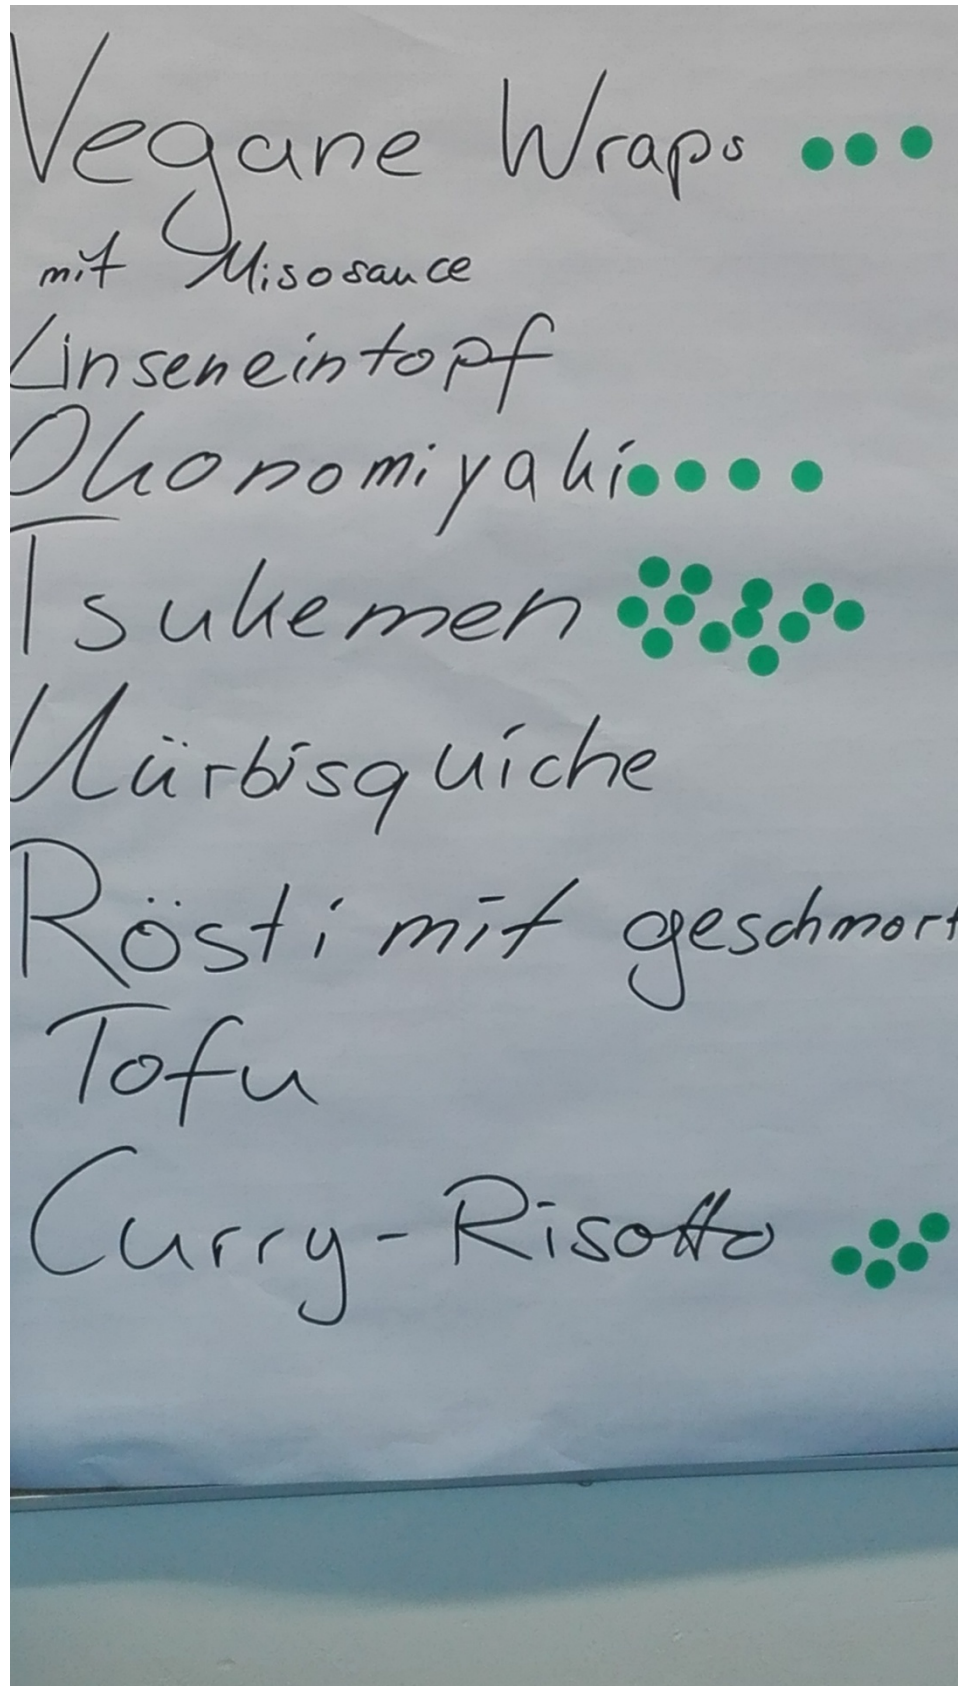 Vegane Wraps
mit Misosauce
Linseneintopf
Okonomiyaki
Tsukemen
Kürbisquiche
Rösti mit geschmort
Tofu
Curry-Risotto